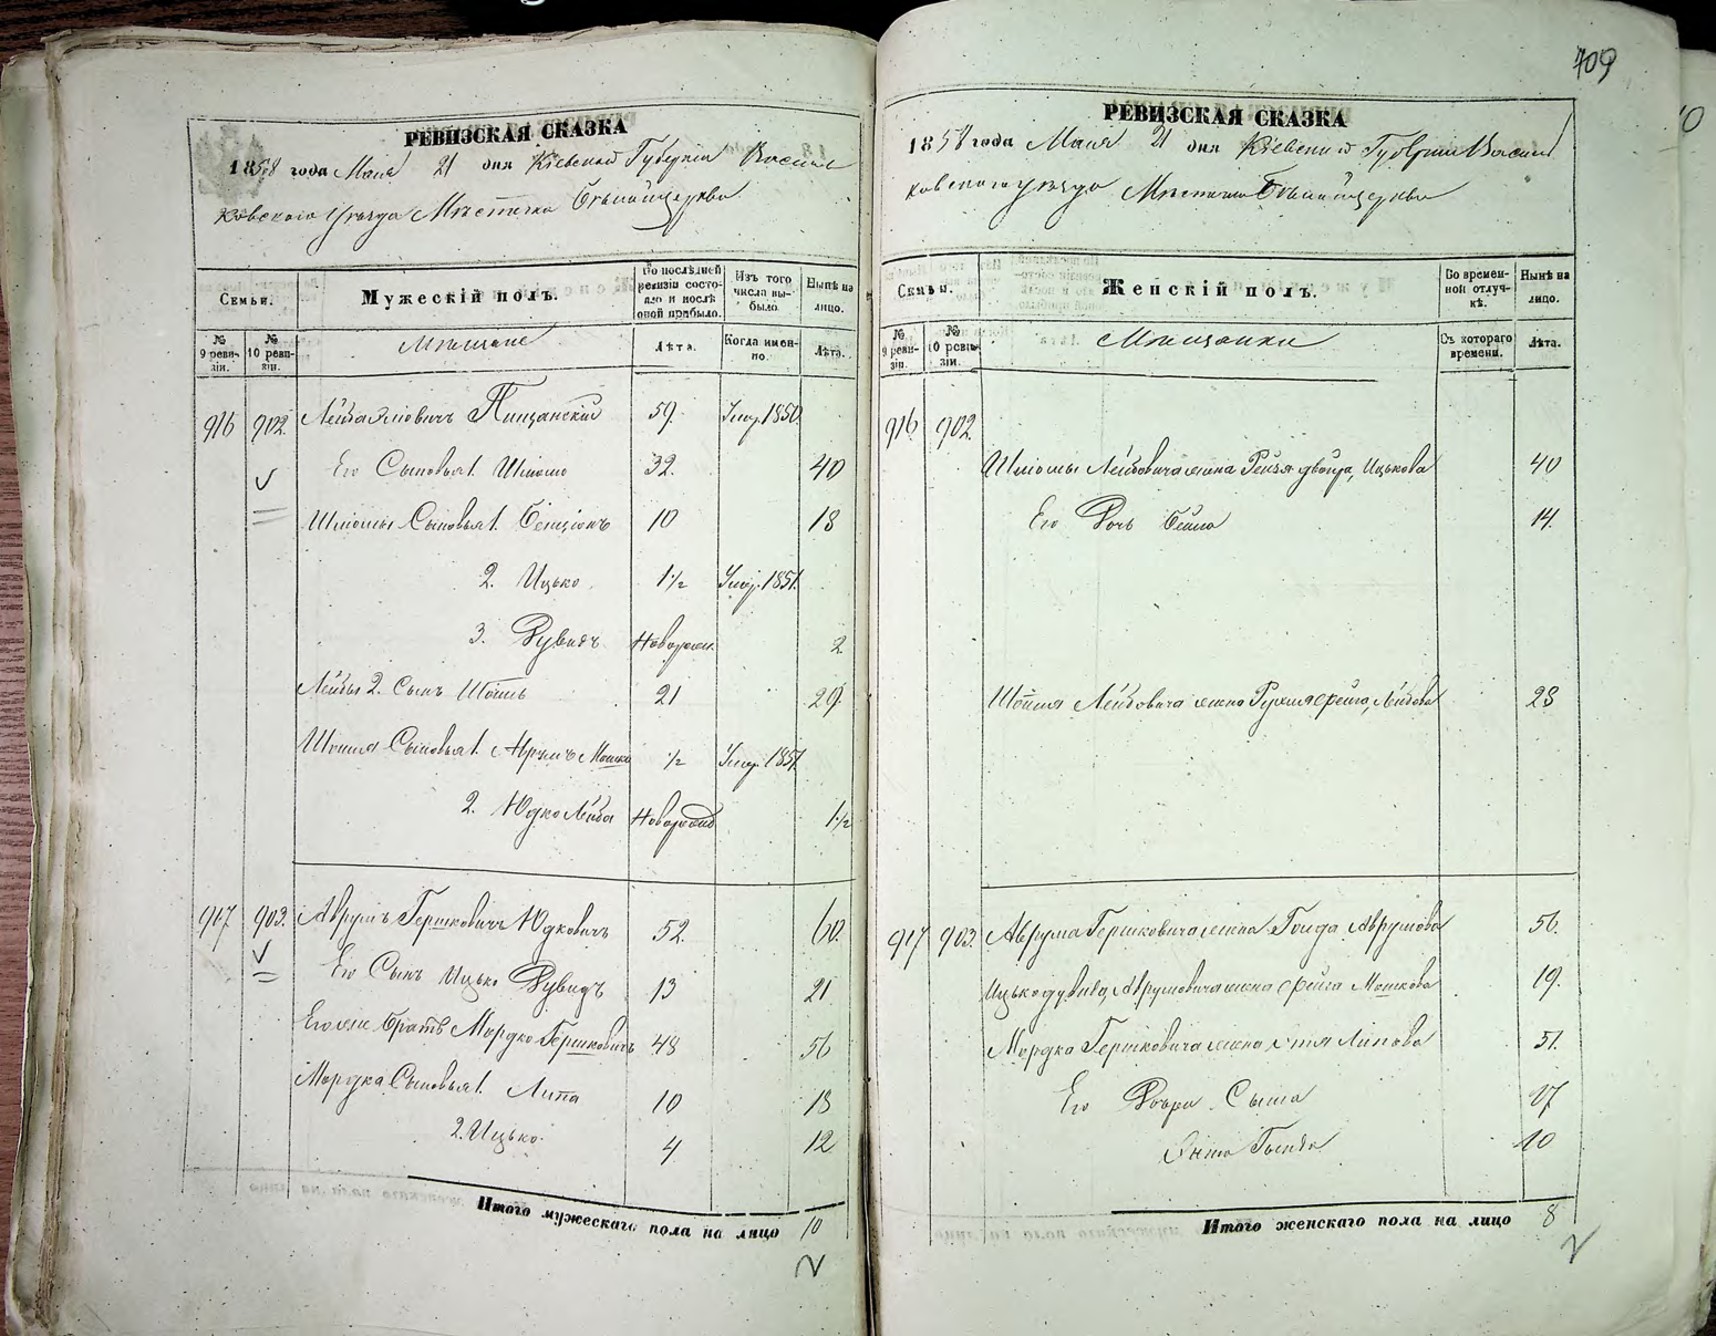 РЕВИЗСКАЯ СКАЗКА
1858 года Маія 21 дня Кіевской Губерніи Василь
ковского уѣзда Мѣстечка Бѣлойцеркви
Семьи.
Мужескій полъ.
По послѣдней ревизіи состояло и послѣ оной прибыло.
Изъ того числа выбыло
Нынѣ на лицо.
№ 9 ревизіи.
№ 10 ревизіи.
Мѣщане
Лѣта.
Когда именно.
Лѣта.
916 902 Лейба Піщанскій 59. Умер. 1850
Его Сыновья 1. Шліома 32. 40
Шліомы Сыновья 1. Бенціонъ 10 18
2. Ицько 1½ Умер. 1851.
3. Дувидъ Новорожд. 2
Лейбы 2. Сынъ 21 29.
Сыновья 1. Аврумъ Мошко ½ Умер. 1851.
2. Юдко Лейба Новорожд 1½
917 903. Аврумъ Гершковичъ Юдковичъ 52. 60.
Его Сынъ Ицько Дувидъ 13 21
Его же братъ Мордко Гершковичъ 48 56
Мордка Сыновья 1. Липа 10 18
2. Ицько 4 12
Итого мужескаго пола на лицо 10
409
РЕВИЗСКАЯ СКАЗКА
1858 года Маія 21 дня Кіевской Губерніи Василь
ковского уѣзда Мѣстечка Бѣлойцеркви
Семьи.
Женскій полъ.
Во временной отлучкѣ.
Нынѣ на лицо.
№ 9 ревизіи.
№ 10 ревизіи.
Мѣщанки
Съ котораго времени.
Лѣта.
916 902.
Шліомы Лейбовича жена Рейзя Двойра, Ицькова 40
Его Дочь Бейла 14.
Лейбовича жена Лейбова 28
917 903. Аврума Гершковича жена Голда Аврумова 56.
Ицько Дувида Аврумовича жена Фейга Мошкова 19.
Мордка Гершковича жена Липова 51.
Его Дочери Сыма 17
10
Итого женскаго пола на лицо 8